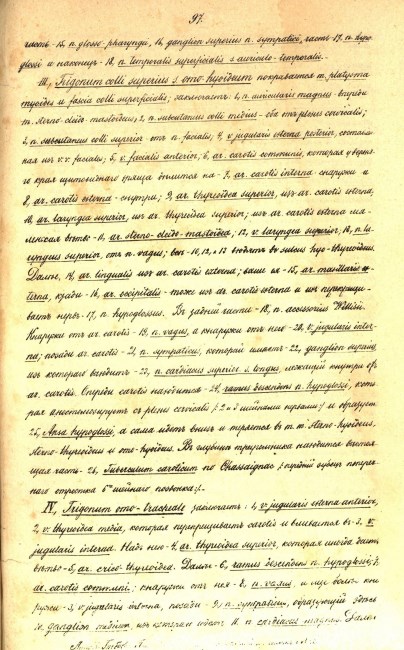 97.
часть - 15, n. glosso-pharyngei, 16, ganglion superius n. sympatici, часть 17, n. hypo-
glossi и наконец - 18, n. temporalis superficialis s. auriculo-temporalis.
III, Trigonum colli superius s. omo-hyoideum покрывается m. platysma
myoides и fascia colli superficialis; заключает: 1, n. auricularis magnus - впереди
m. sterno-cleido-mastoideus; 2, n. subcutaneus colli medius - оба от plexus cervicalis;
3, n. subcutaneus colli superior от n. facialis; 4, v. jugularis externa posterior,
ная из v.v. facialis; 5, v. facialis anterior; 6, ar. carotis communis, которая у верхня-
го края щитовидного хряща делится на - 7, ar. carotis externa - снаружи и
8, ar. carotis interna - снутри; 9, ar. thyreoidea superior, из ar. carotis externa;
10, ar. laryngea superior, из ar. thyreoidea superior; из ar. carotis externa
ветвь - 11, ar. sterno-cleido-mastoidea; 12, v. laryngea superior; 13, n. la-
ryngeus superior, от n. vagus; все - 10, 12, и 13 в sulcus hyo-thyreoideus.
Далее, 14, ar. lingualis из ar. carotis externa; выше ея - 15, ar. maxillaris ex-
terna, кзади - 16, ar. occipitalis - тоже из ar. carotis externa и
вает нерв - 17, n. hypoglossus. В задней части - 18, n. accessorius Willisii.
Кнаружи от ar. carotis - 19, n. vagus, а кнаружи от нея - 20, v. jugularis inter-
na; позади ar. carotis - 21, n. sympaticus, который имеет - 22, ganglion supremum,
из которого выходит - 23, n. cardiacus superior s. longus, лежащий кнутри от
ar. carotis. Спереди carotis находится - 24, ramus descendens n. hypoglossi, кото-
рая анастомозирует с plexus cervicalis (2 и 3 шейными нервами) и образует
25, Ansa hypoglossi, а сама идет вниз и теряется в m.m. sterno-hyoideus,
sterno-thyreoideus и omo-hyoideus. В глубине треугольника находится
щая часть - 26, Tuberculum caroticum по Chassaignac (передний бугорок попереч-
наго отростка 6го шейнаго позвонка).
IV, Trigonum omo-tracheale заключает: 1, v. jugularis externa anterior,
2, v. thyreoidea media, которая перекрещивает carotis и вливается в - 3, v.
jugularis interna. Над нею - 4, ar. thyreoidea superior, которая иногда дает
ветвь - 5, ar. crico-thyreoidea. Далее - 6, ramus descendens n. hypoglossi; 7,
ar. carotis communis; кнаружи от нея - 8, n. vagus, и еще более кна-
ружи - 3, v. jugularis interna, позади - 9, n. sympaticus, образующий здесь
10, ganglion medium, из которого идет 11, n. cardiacus magnus. Далее